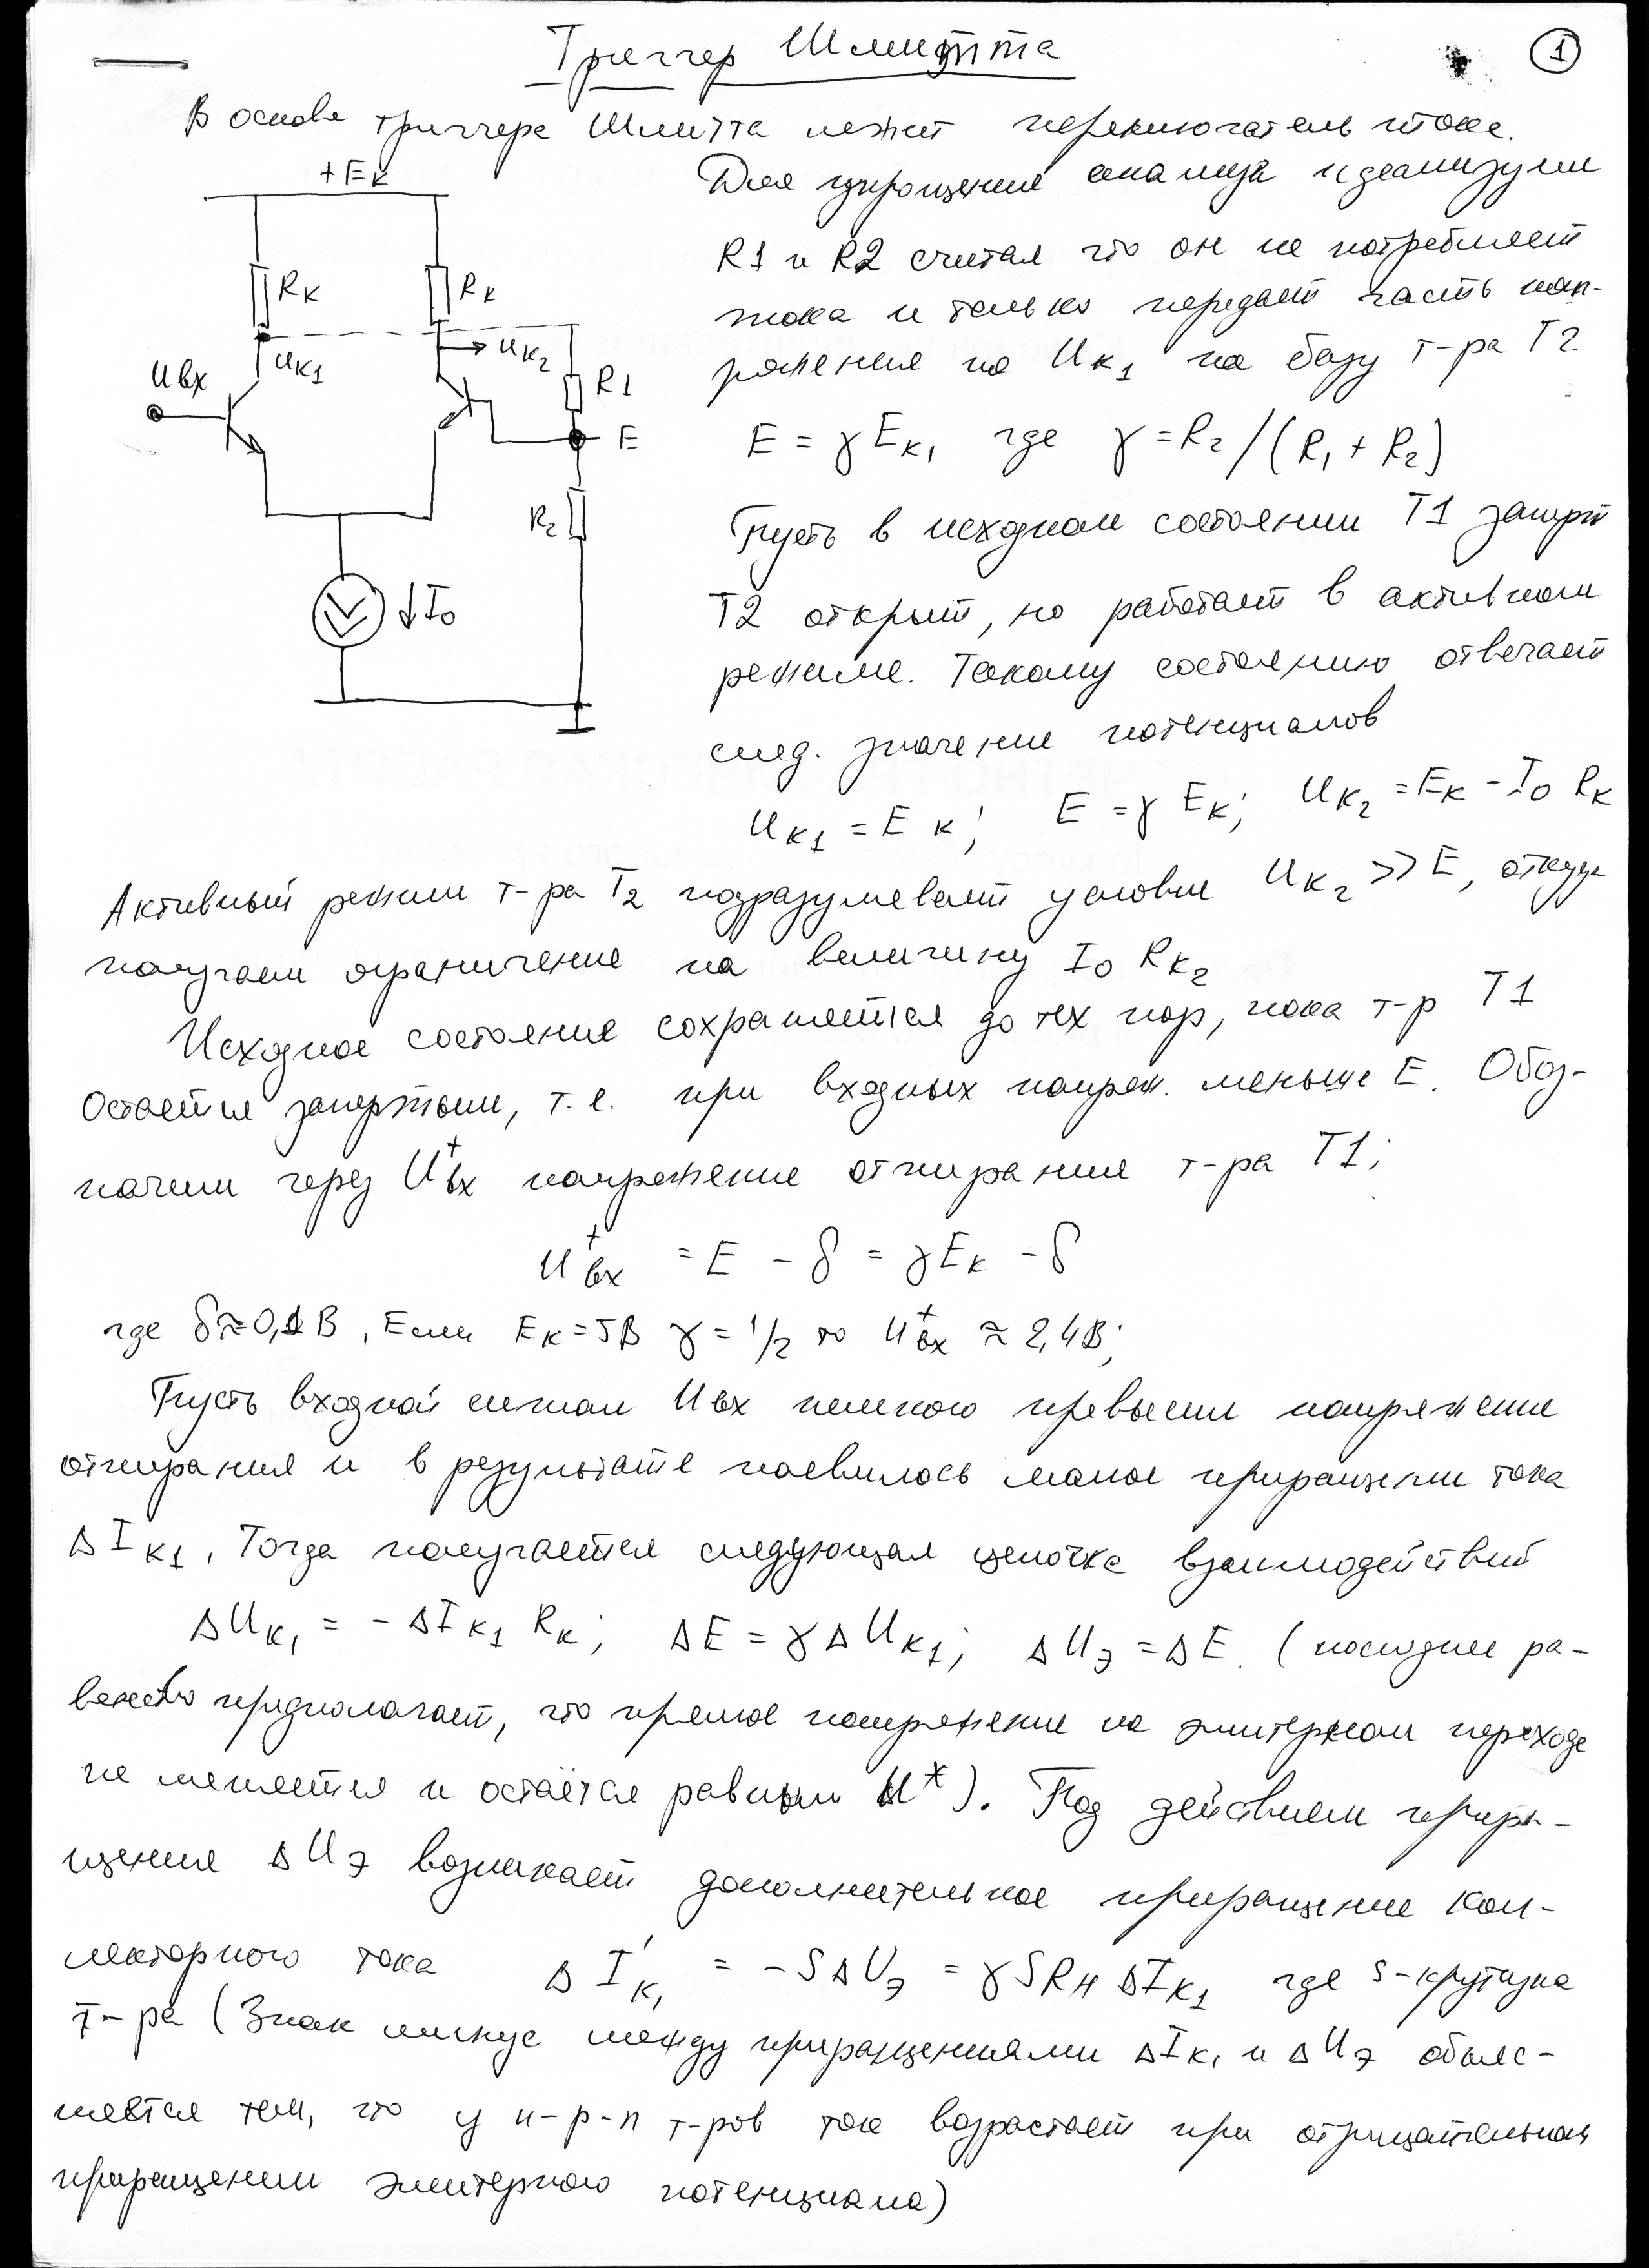 Триггер Шмидтта
1
В основе триггера Шмитта лежит переключатель тока.
+Eк
Rк
Rк
Uк1
Uк2
Uвх
R1
E
R2
↓I0
Для упрощения анализа идеализуем
R1 и R2 считая что он не потребляет
тока и только передает часть нап-
ряжения на Uк1 на базу т-ра Т2.
E = γ Eк1 где γ = R2/(R1 + R2)
Пусть в исходном состоянии Т1 заперт
Т2 открыт, но работает в активном
режиме. Такому состоянию отвечает
след. значение потенциалов
Uк1 = Eк; E = γ Eк; Uк2 = Eк - I0 Rк
Активный режим т-ра Т2 подразумевает условие Uк2 >> E, откуда
получаем ограничение на величину I0 Rк2
Исходное состояние сохраняется до тех пор, пока т-р Т1
остается запертым, т.е. при входных напряж. меньше E. Обоз-
начим через U⁺вх напряжение отпирания т-ра Т1;
U⁺вх = E - δ = γEк - δ
где δ≈0,1В, Если Eк=5В γ=1/2 то U⁺вх ≈ 2,4В;
Пусть входной сигнал Uвх немного превысил напряжение
отпирания и в результате появилось малое приращении тока
ΔIк1, Тогда получается следующая цепочка взаимодействий
ΔUк1 = - ΔIк1 Rк; ΔE = γΔUк1; ΔUэ = ΔE. (последнее ра-
венство предполагает, что прямое напряжение на эмитерном переходе
не меняется и остаётся равным U*). Под действием прира-
щения ΔUэ возникает дополнительное приращение кол-
лекторного тока ΔI'к1 = -SΔUэ = γSRн ΔIк1 где S-крутизна
т-ра (Знак минус между приращениями ΔIк1 и ΔUэ объяс-
няется тем, что у n-p-n т-ров ток возрастает при отрицательном
приращении эмитерного потенциала)